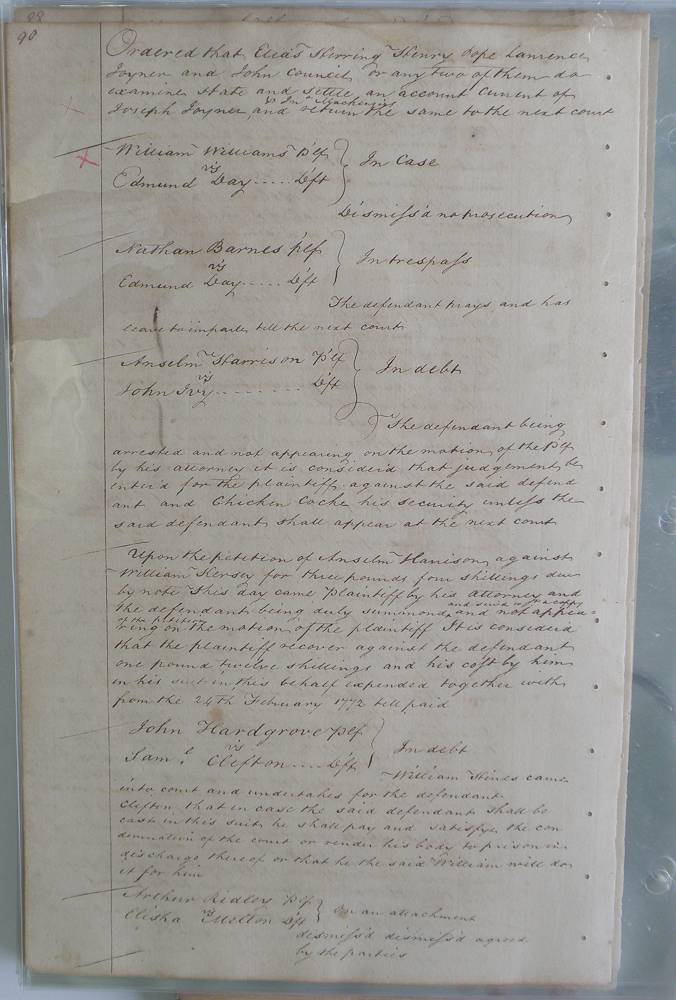 90
Ordered that Elias Herring Henry Pope Lawrence
Joyner and John Council or any two of them do
examine state and settle an account Current of
Joseph Joyner and return the same to the next court
William Williams Plf
vs
Edmund Day ..... Dft
In Case
Dismiss'd no prosecution
Nathan Barnes plf
vs
Edmund Day ..... Dft
In trespass
The defendant prays and has
leave to imparle till the next court
Anselm Harrison Plf
vs
John Ivy ........ Dft
In debt
The defendant being
arrested and not appearing on the motion of the Plf
by his attorney it is consider'd that judgement be
enter'd for the plaintiff against the said defend
ant and Chichen Cocke his security unless the
said defendant shall appear at the next court
Upon the petition of Anselm Harrison against
William Kersey for three pounds four shillings due
by note This day came Plaintiff by his attorney and
the defendant being duly summond and serv'd with a copy and not appea=
of the petition
ring on the motion of the plaintiff It is consider'd
that the plaintiff recover against the defendant
one pound twelve shillings and his cost by him
in his suit in this behalf expended together with
from the 24th February 1772 till paid
John Hardgrove plf
vs
Saml Clifton .... Dft
In debt
William Hines came
into court and undertakes for the defendant
Clifton that in case the said defendant shall be
cast in this suit he shall pay and satisfye the con
demnation of the court or render his body to prison in
discharge thereof or that he the said William will do
it for him
Arthur Ridley plf
vs
Elisha Melton Dft
On an attachment
dismiss'd dismiss'd agreed
by the parties